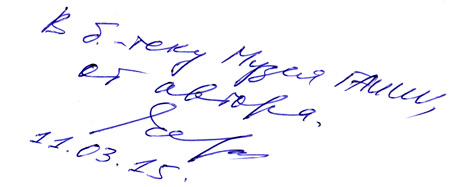 В б.-теку Музея ГАИШ,
от автора.
11.03.15.